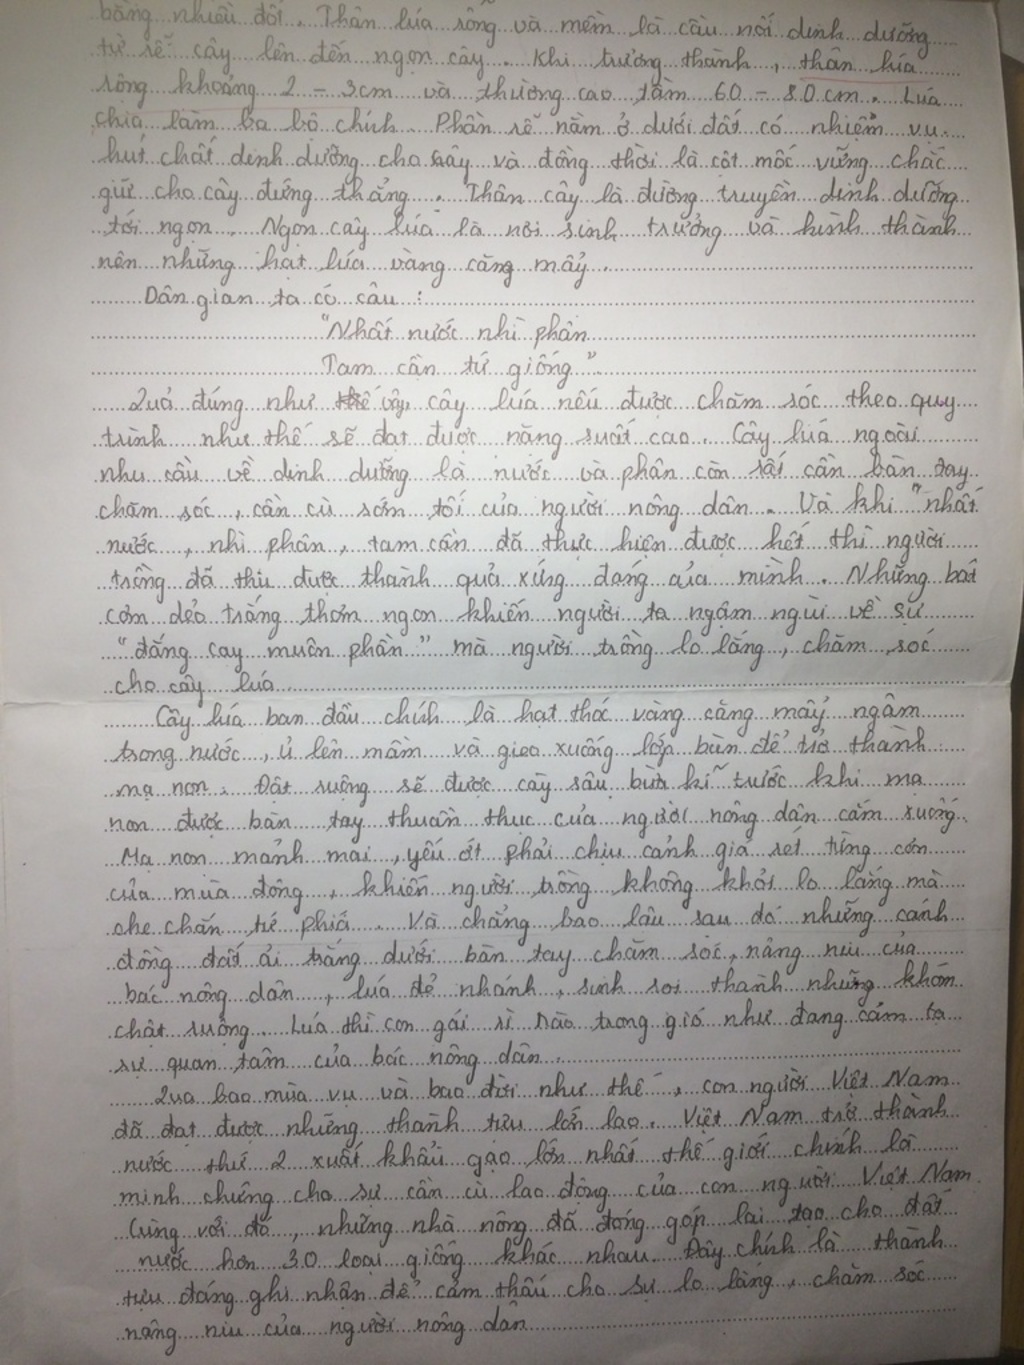 bằng nhiều đốt. Thân lúa rỗng và mềm là cầu nối dinh dưỡng
từ rễ cây lên đến ngọn cây. Khi trưởng thành, thân lúa
rộng khoảng 2 - 3cm và thường cao tầm 60 - 80cm. Lúa
chia làm ba bộ chính. Phần rễ nằm ở dưới đất có nhiệm vụ
hút chất dinh dưỡng cho cây và đồng thời là cột mốc vững chắc
giữ cho cây đứng thẳng. Thân cây là đường truyền dinh dưỡng
tới ngọn. Ngọn cây lúa là nơi sinh trưởng và hình thành
nên những hạt lúa vàng căng mẩy.
Dân gian ta có câu:
"Nhất nước nhì phân
Tam cần tứ giống".
Quả đúng như vậy, cây lúa nếu được chăm sóc theo quy
trình như thế sẽ đạt được năng suất cao. Cây lúa ngoài
nhu cầu về dinh dưỡng là nước và phân còn rất cần bàn tay
chăm sóc, cần cù sớm tối của người nông dân. Và khi "nhất
nước, nhì phân, tam cần đã thực hiện được hết thì người
trồng đã thu được thành quả xứng đáng của mình. Những bát
cơm dẻo trắng thơm ngon khiến người ta ngậm ngùi về sự
"đắng cay muôn phần" mà người trồng lo lắng, chăm sóc
cho cây lúa.
Cây lúa ban đầu chính là hạt thóc vàng căng mẩy ngâm
trong nước, ủ lên mầm và gieo xuống lớp bùn để trở thành
mạ non. Đất ruộng sẽ được cày sâu bừa kĩ trước khi mạ
non được bàn tay thuần thục của người nông dân cắm xuống.
Mạ non mảnh mai, yếu ớt phải chịu cảnh giá rét từng cơn
của mùa đông, khiến người trồng không khỏi lo lắng mà
che chắn tứ phía. Và chẳng bao lâu sau đó những cánh
đồng đất ải trắng dưới bàn tay chăm sóc, nâng niu của
bác nông dân, lúa đẻ nhánh, sinh sôi thành những khóm
chật ruộng. Lúa thì con gái rì rào trong gió như đang cảm tạ
sự quan tâm của bác nông dân.
Qua bao mùa vụ và bao đời như thế, con người Việt Nam
đã đạt được những thành tựu lớn lao. Việt Nam trở thành
nước thứ 2 xuất khẩu gạo lớn nhất thế giới chính là
minh chứng cho sự cần cù lao động của con người Việt Nam.
Cùng với đó, những nhà nông đã đóng góp lai tạo cho đất
nước hơn 30 loại giống khác nhau. Đây chính là thành
tựu đáng ghi nhận để cảm thấu cho sự lo lắng, chăm sóc
nâng niu của người nông dân